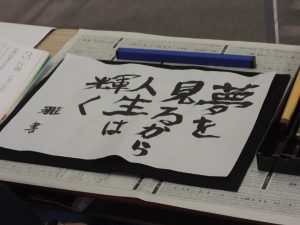 夢を
見るから
人生は
輝く